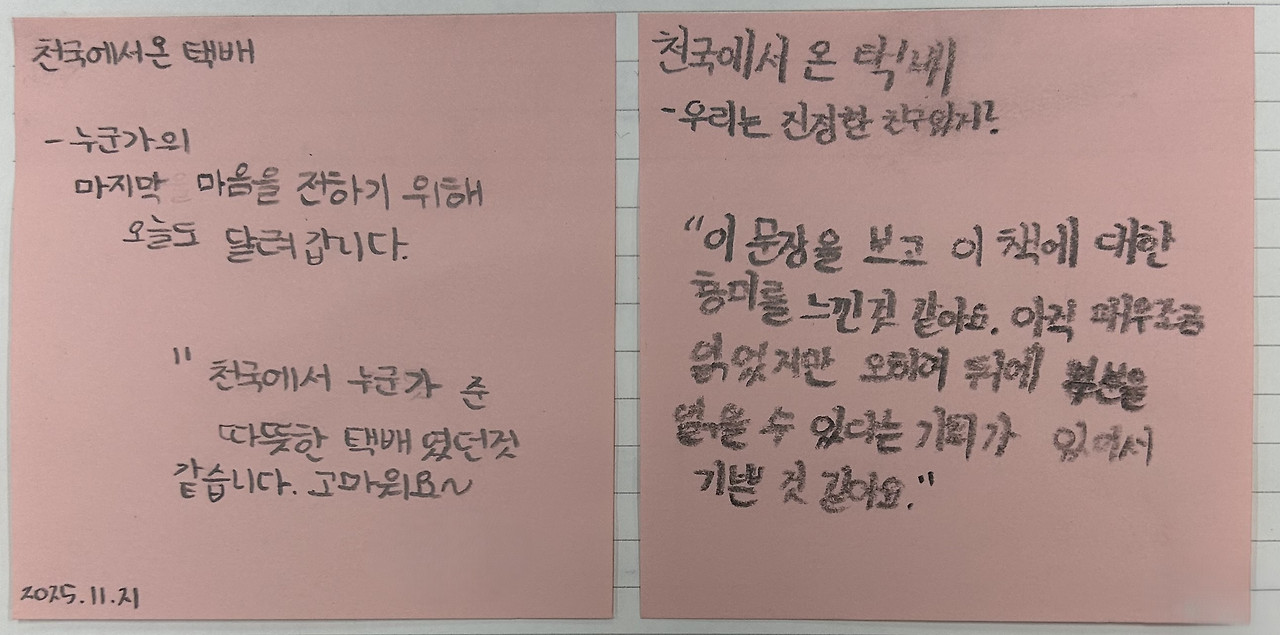 천국에서 온 택배
- 누군가의
마지막 마음을 전하기 위해
오늘도 달려갑니다.
" 천국에서 누군가 준
따뜻한 택배 였던것
같습니다. 고마워요~
2025.11.21
천국에서 온 택배
- 우리는 진정한 친구였지?
"이 문장을 보고 이 책에 대한
흥미를 느낀것 같아요. 아직 매우조금
읽었지만 오히려 뒤에 부분을
읽을 수 있다는 기회가 있어서
기쁜 것 같아요."